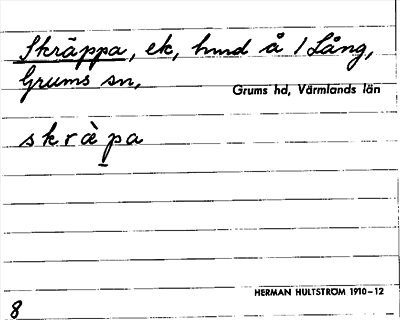 Skräppa, ek, hmd å 1 Lång,
Grums sn,
Grums hd, Värmlands län
skrὰ̈p̲a
HERMAN HULTSTRÖM 1910–12
8